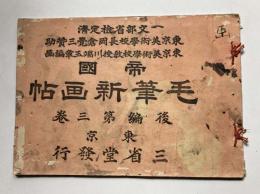 文部省検定済
東京美術学校長岡倉覚三賛助
東京美術学校教授川端玉章編画
帝國
毛筆新画帖
後編第三巻
東京
三省堂發行